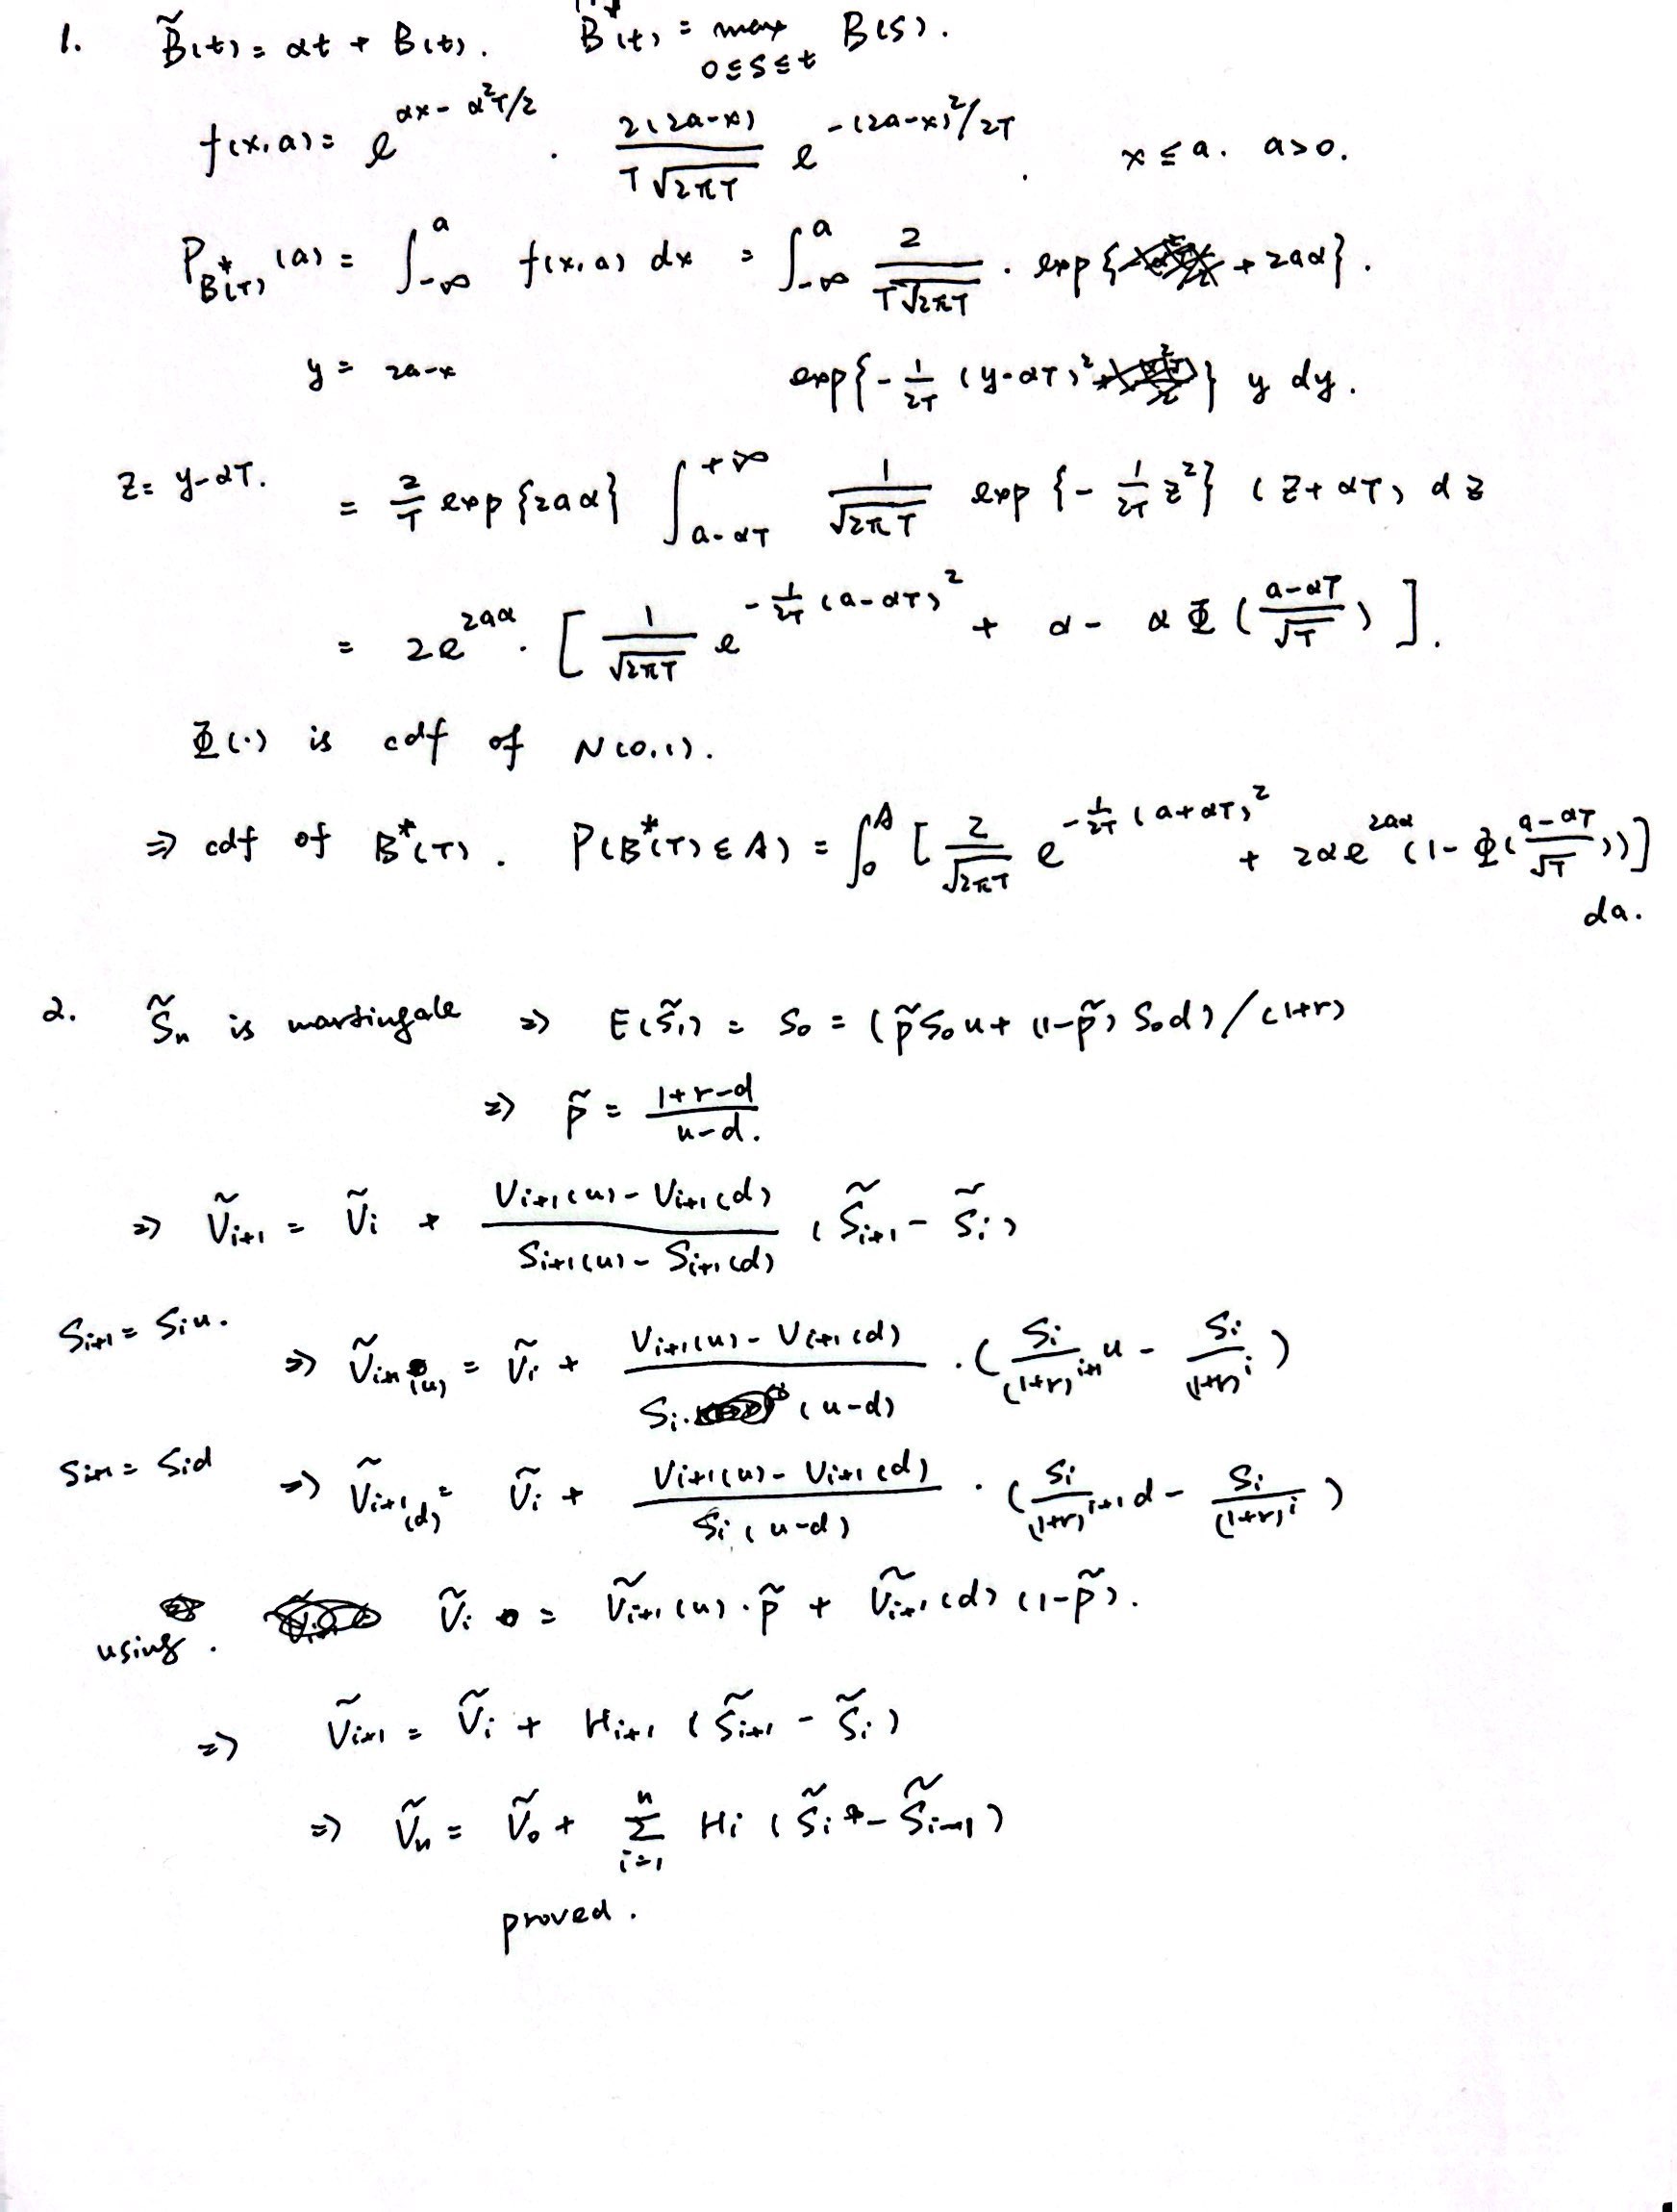 1. B̃(t) = αt + B(t). B̃*(t) = max_{0≤s≤t} B(s).
f(x,a) = e^{αx - α²T/2} · 2(2a-x)/(T√(2πT)) e^{-(2a-x)²/2T}. x ≤ a. a>0.
P_{B*(T)}(a) = ∫_{-∞}^{a} f(x,a) dx = ∫_{-∞}^{a} 2/(T√(2πT)) · exp{+2aα}.
y = 2a-x exp{-1/2T (y-αT)²} y dy.
z = y-αT. = 2/T exp{2aα} ∫_{a-αT}^{+∞} 1/√(2πT) exp{-1/2T z²} (z+αT) dz
= 2e^{2aα} · [1/√(2πT) e^{-1/2T (a-αT)²} + α - αΦ((a-αT)/√T)].
Φ(·) is cdf of N(0,1).
⇒ cdf of B*(T). P(B*(T) ∈ A) = ∫_0^A [2/√(2πT) e^{-1/2T (a+αT)²} + 2αe^{2aα}(1-Φ((a-αT)/√T))]
da.
2. S̃n is martingale ⇒ E(S̃1) = S0 = (p̃S0u + (1-p̃)S0d)/(1+r)
⇒ p̃ = (1+r-d)/(u-d).
⇒ Ṽi+1 = Ṽi + (Vi+1(u) - Vi+1(d))/(Si+1(u) - Si+1(d)) (S̃i+1 - S̃i)
Si+1 = Siu. ⇒ Ṽi+1(u) = Ṽi + (Vi+1(u) - Vi+1(d))/(Si·(u-d)) · (Si/(1+r)^{i+1} u - Si/(1+r)^i)
Si+1 = Sid ⇒ Ṽi+1(d) = Ṽi + (Vi+1(u) - Vi+1(d))/(Si(u-d)) · (Si/(1+r)^{i+1} d - Si/(1+r)^i)
using. Ṽi = Ṽi+1(u)·p̃ + Ṽi+1(d)(1-p̃).
⇒ Ṽi+1 = Ṽi + Hi+1 (S̃i+1 - S̃i)
⇒ Ṽn = Ṽ0 + Σ_{i=1}^{n} Hi (S̃i - S̃i-1)
proved.